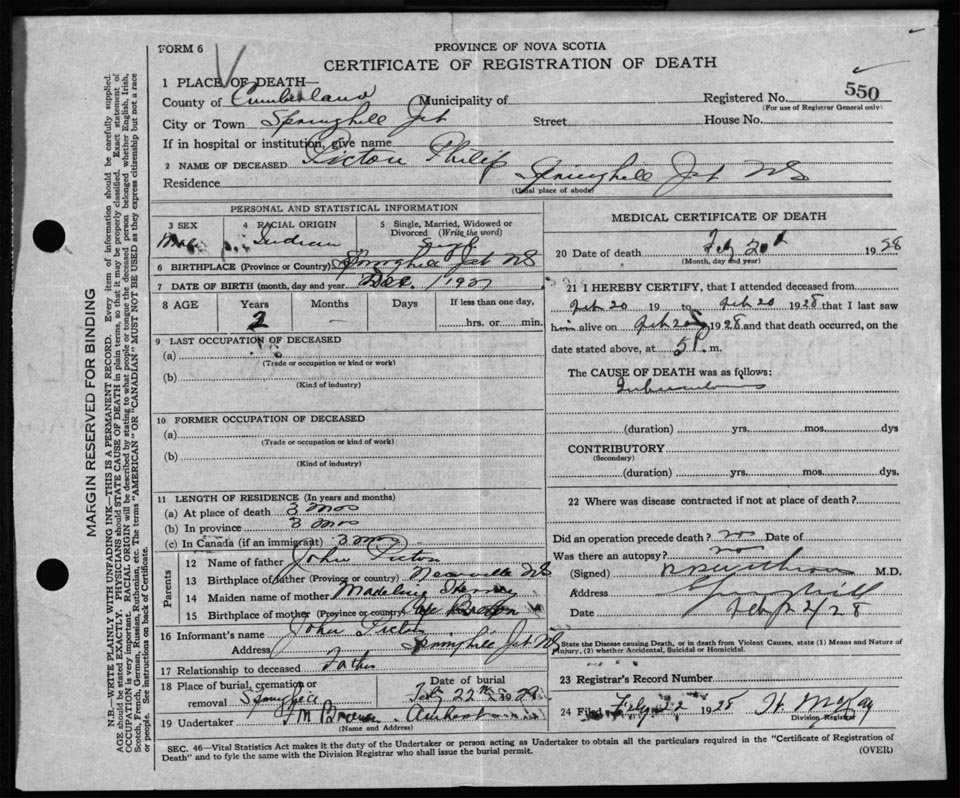 FORM 6
PROVINCE OF NOVA SCOTIA
CERTIFICATE OF REGISTRATION OF DEATH
1 PLACE OF DEATH—
County of Cumberland Municipality of Registered No. 550
(For use of Registrar General only)
City or Town Springhill Jct Street House No.
If in hospital or institution, give name
2 NAME OF DECEASED Picton Philip
Residence Springhill Jct NS
(Usual place of abode)
PERSONAL AND STATISTICAL INFORMATION
3 SEX 4 RACIAL ORIGIN 5 Single, Married, Widowed or Divorced (Write the word)
Indian
6 BIRTHPLACE (Province or Country) Springhill Jct NS
7 DATE OF BIRTH (month, day and year) Dec. 1927
8 AGE Years Months Days If less than one day,
2 — hrs. or min.
9 LAST OCCUPATION OF DECEASED
(a)
(Trade or occupation or kind of work)
(b)
(Kind of industry)
10 FORMER OCCUPATION OF DECEASED
(a)
(Trade or occupation or kind of work)
(b)
(Kind of industry)
11 LENGTH OF RESIDENCE (In years and months)
(a) At place of death 3 mos
(b) In province 3 mos
(c) In Canada (if an immigrant) 3 mos
Parents
12 Name of father John Picton
13 Birthplace of father (Province or country) NS
14 Maiden name of mother Madeline
15 Birthplace of mother (Province or country) Breton
16 Informant's name John Picton
Address Springhill Jct NS
17 Relationship to deceased Father
18 Place of burial, cremation or removal Springhill
Date of burial Feb 22nd 1928
19 Undertaker Brown Amherst
(Name and Address)
MEDICAL CERTIFICATE OF DEATH
20 Date of death Feb 20th 1928
(Month, day and year)
21 I HEREBY CERTIFY, that I attended deceased from
Feb 20 19 to Feb 20 1928 that I last saw
him alive on Feb 20 1928 and that death occurred, on the
date stated above, at 5 P. m.
The CAUSE OF DEATH was as follows:
Tuberculosis
(duration) yrs. mos. dys
CONTRIBUTORY
(Secondary)
(duration) yrs. mos. dys.
22 Where was disease contracted if not at place of death?
Did an operation precede death? no Date of
Was there an autopsy? no
(Signed) M.D.
Address Springhill
Date Feb 22/28
State the Disease causing Death, or in death from Violent Causes, state (1) Means and Nature of
Injury, (2) whether Accidental, Suicidal or Homicidal.
23 Registrar's Record Number
24 Filed Feby 22 1928 H. McKay
Division Registrar
SEC. 46—Vital Statistics Act makes it the duty of the Undertaker or person acting as Undertaker to obtain all the particulars required in the "Certificate of Registration of
Death" and to fyle the same with the Division Registrar who shall issue the burial permit. (OVER)
MARGIN RESERVED FOR BINDING
N.B.—WRITE PLAINLY WITH UNFADING INK—THIS IS A PERMANENT RECORD. Every item of information should be carefully supplied.
AGE should be stated EXACTLY. PHYSICIANS should STATE CAUSE OF DEATH in plain terms, so that it may be properly classified. Exact statement of
OCCUPATION is very important. RACIAL ORIGIN will be described by stating to what people or tongue the deceased person belonged whether English, Irish,
Scotch, French, German, Russian, Ruthenian, etc. The terms "AMERICAN" OR "CANADIAN" MUST NOT BE USED as they express citizenship but not a race
or people. See instructions on back of Certificate.